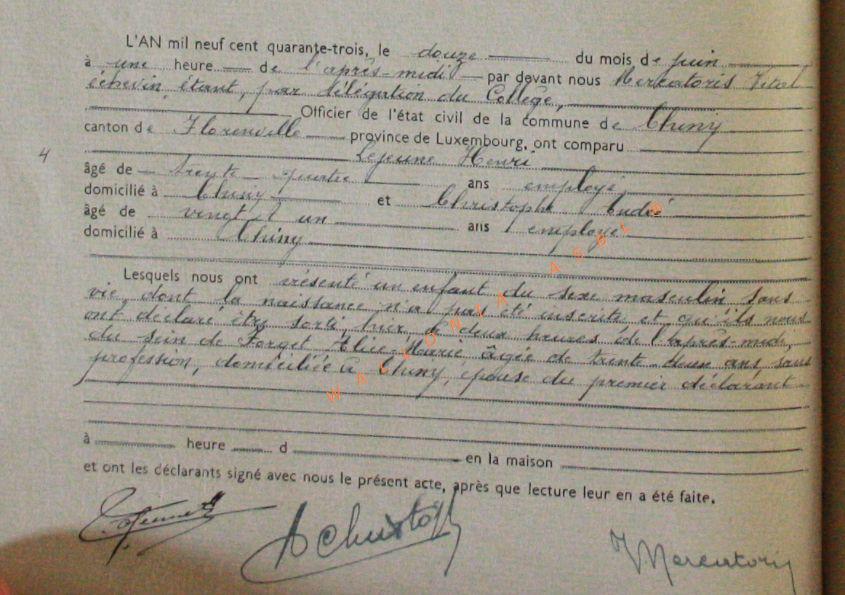 L'AN mil neuf cent quarante-trois, le douze du mois de juin
à une heure de l'après-midi par devant nous Mercatoris Vital
échevin, étant, par délégation du Collège,
Officier de l'état civil de la commune de Chiny
canton de Florenville province de Luxembourg, ont comparu
4
Lejeune Henri
âgé de trente-quatre ans employé,
domicilié à Chiny et Christophe André
âgé de vingt et un ans employé
domicilié à Chiny
Lesquels nous ont présenté un enfant du sexe masculin sans
vie, dont la naissance n'a pas été inscrite et qu'ils nous
ont déclaré être sorti, hier à deux heures de l'après-midi,
du sein de Forget Alice Marie âgée de trente-deux ans, sans
profession, domiciliée à Chiny, épouse du premier déclarant
à heure d en la maison
et ont les déclarants signé avec nous le présent acte, après que lecture leur en a été faite.
AChristoph VMercatoris